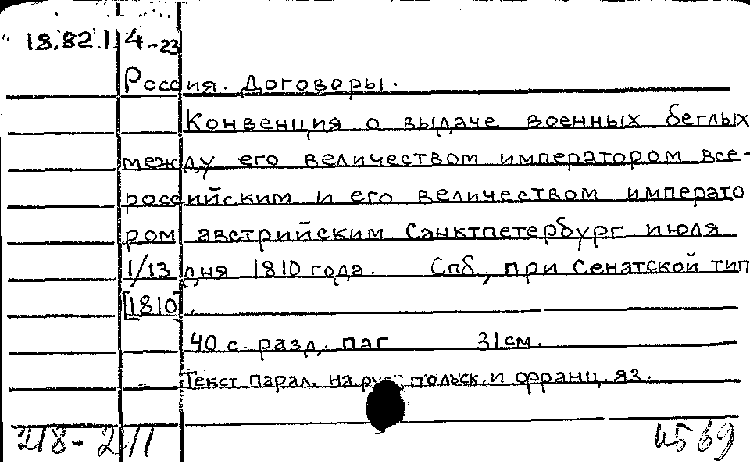 18.82.114-23
Россия. Договоры.
Конвенция о выдаче военных беглых
между его величеством императором все-
российским и его величеством императо
ром австрийским Санктпетербург июля
1/13 дня 1810 года. Спб, при Сенатской тип
[1810].
40 с. разд. паг 31 см.
Текст парал. на русс польск. и франц. яз.
4569